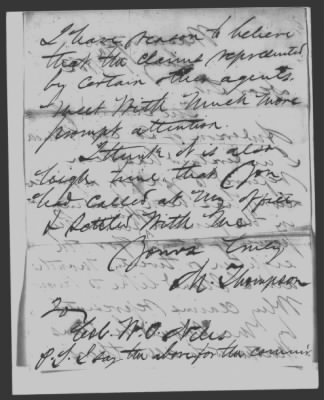 I have reason to believe
that the claims represented
by certain other agents
meet with much more
prompt attention.
I think it is also
high time that you
had called at my office
& settled with me
Yours Truly
M. Thompson
To
Col. W. O.
P.S. I say the above for the